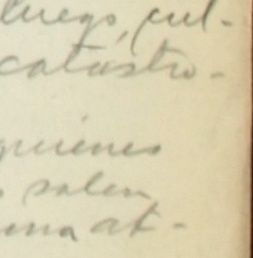 luego, cul-
catástro-
quienes
salen
una at-